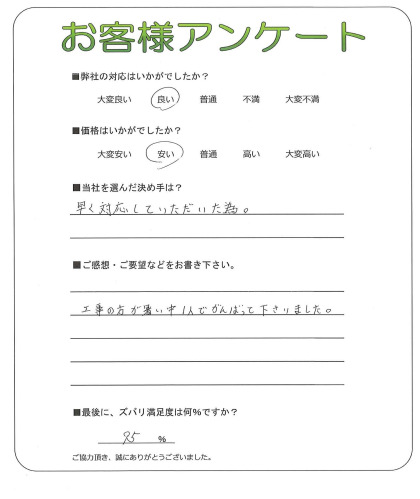 お客様アンケート
■弊社の対応はいかがでしたか?
大変良い 良い 普通 不満 大変不満
■価格はいかがでしたか?
大変安い 安い 普通 高い 大変高い
■当社を選んだ決め手は?
早く対応していただいた為。
■ご感想・ご要望などをお書き下さい。
工事の方が暑い中1人でがんばって下さりました。
■最後に、ズバリ満足度は何%ですか?
95 %
ご協力頂き、誠にありがとうございました。